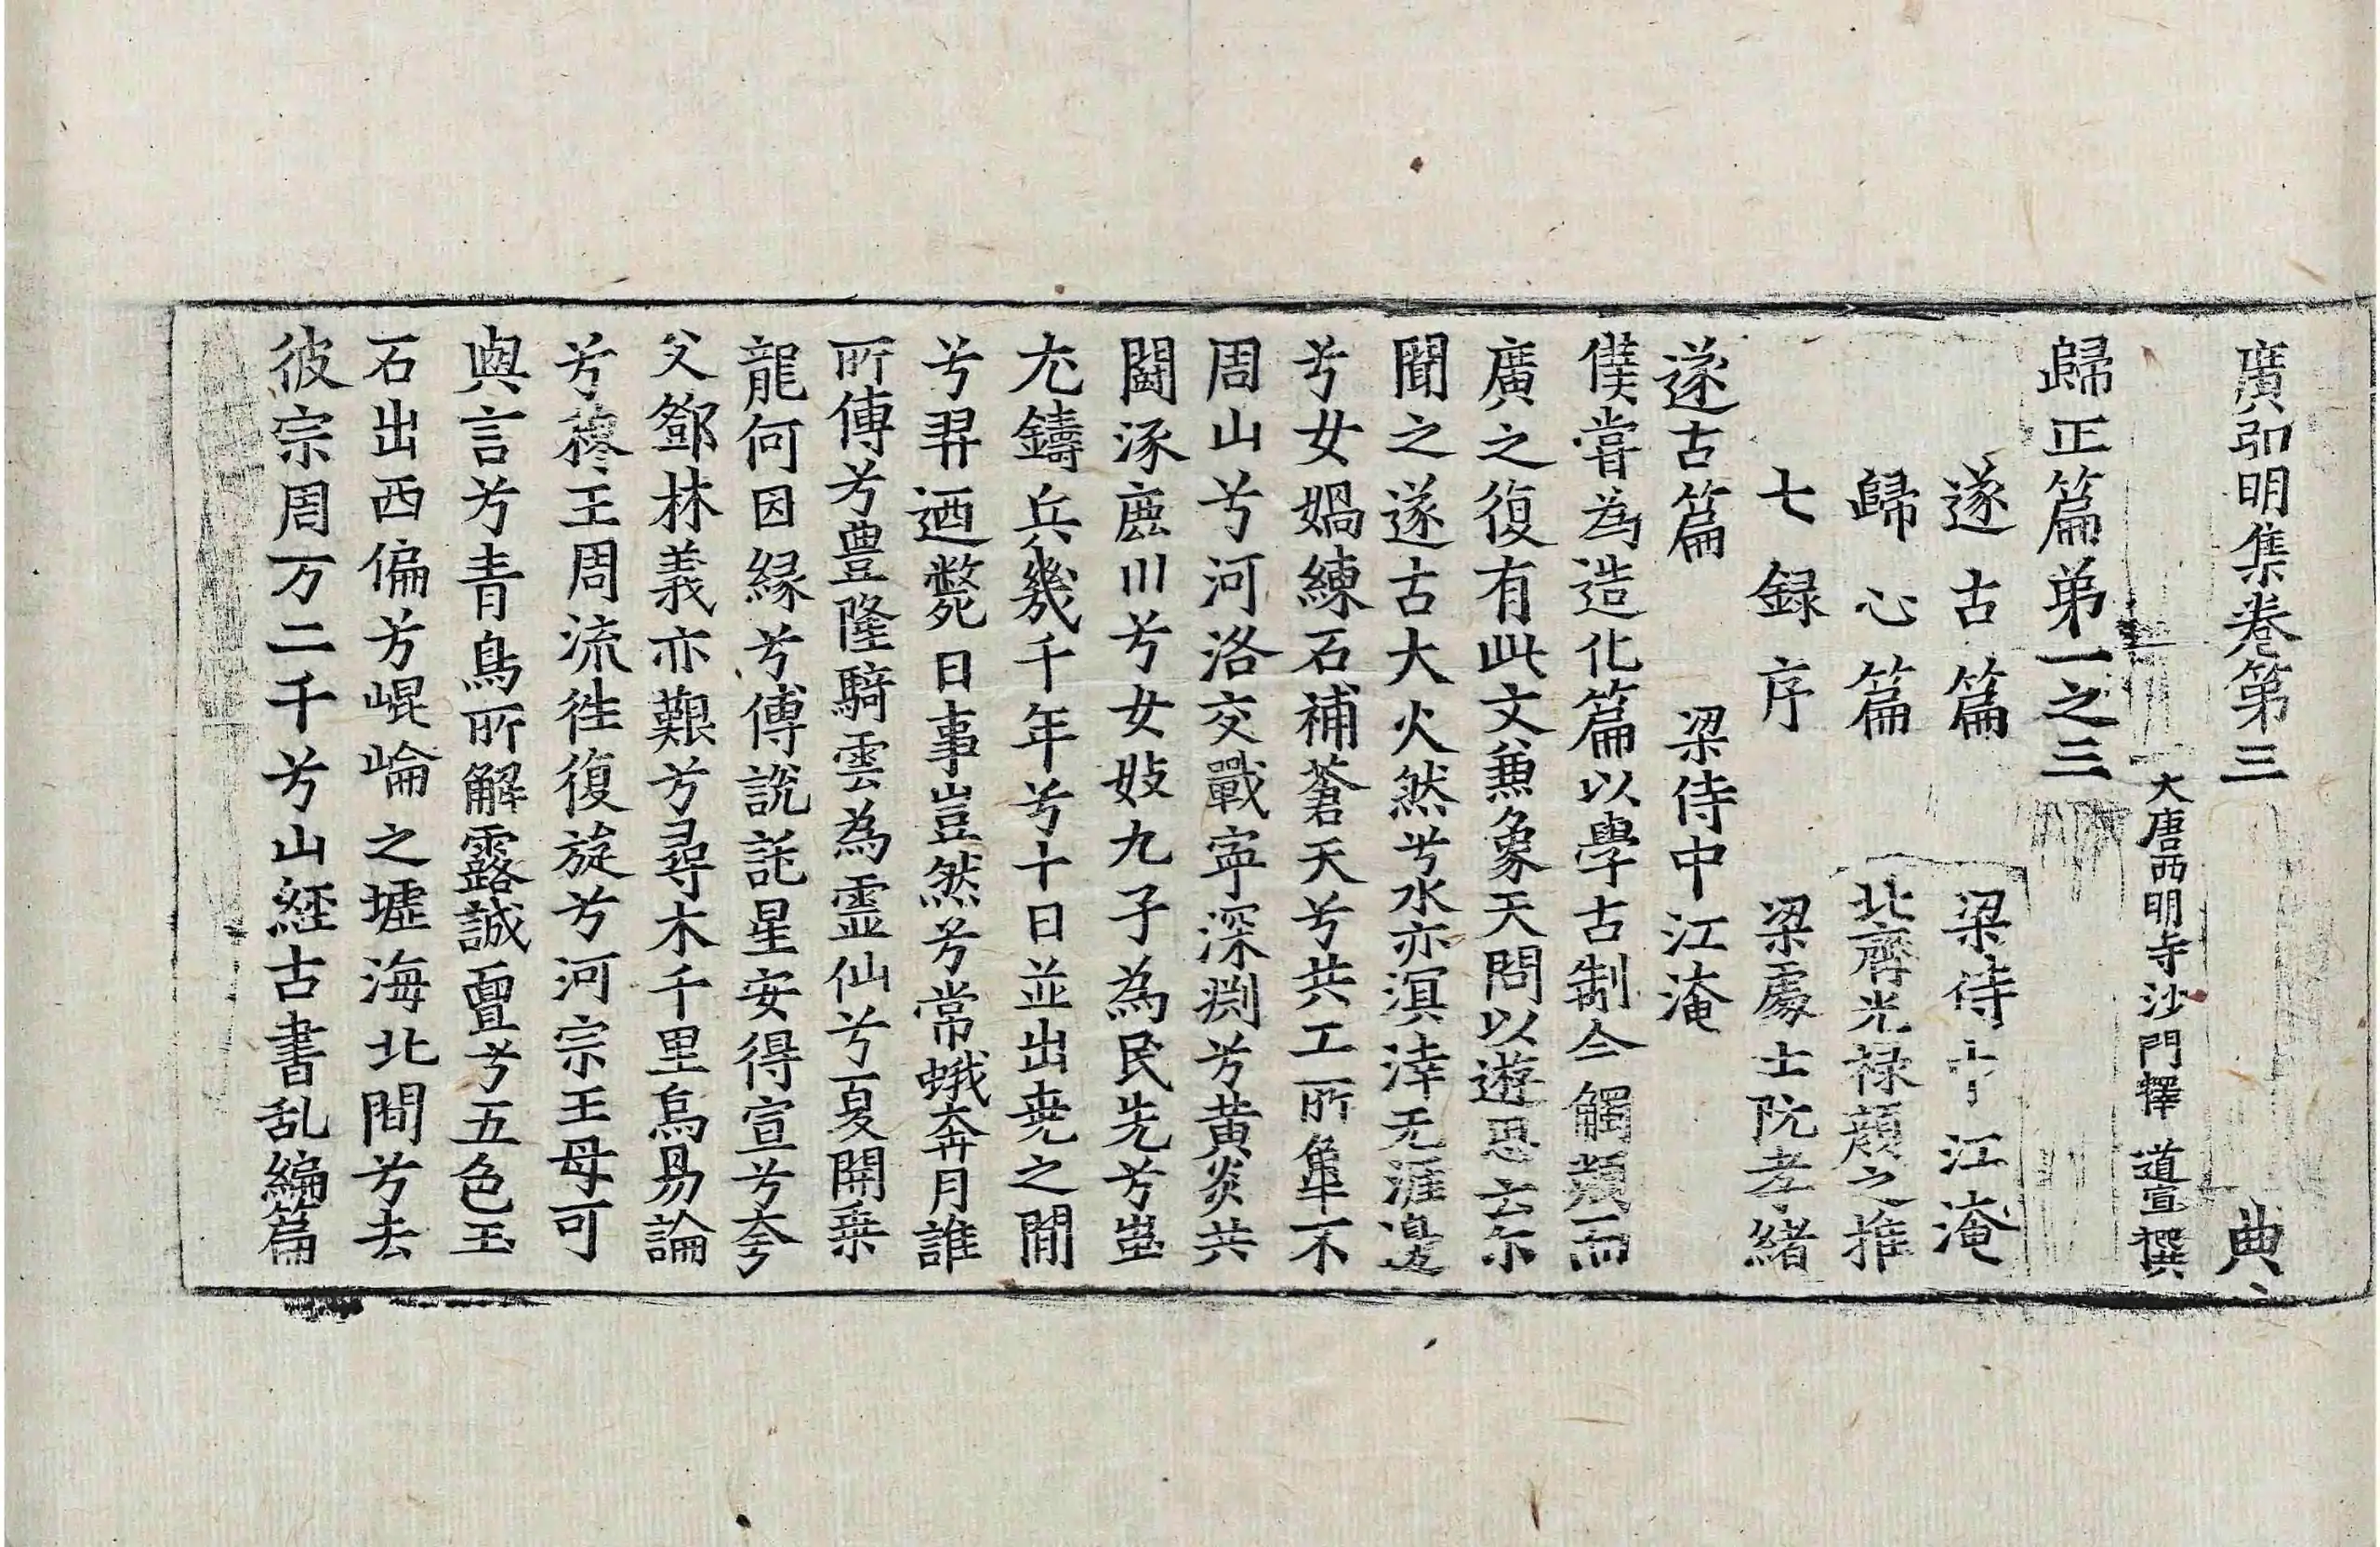 廣弘明集卷第三 典
大唐西明寺沙門釋 道宣撰
歸正篇第一之三
遂古篇 梁侍中江淹
歸心篇 北齊光祿顏之推
七録序 梁處士阮孝緒
遂古篇 梁侍中江淹
僕嘗為造化篇以學古制今觸類而
廣之復有此文兼象天問以遊思云尒
聞之遂古大火然兮水亦溟涬无涯邊
兮女媧練石補蒼天兮共工所觸不
周山兮河洛交戰寜深淵兮黃炎共
鬪涿鹿川兮女妓九子為民先兮蚩
尤鑄兵幾千年兮十日並出堯之間
兮羿迺斃日事豈然兮常蛾奔月誰
所傳兮豊隆騎雲為靈仙兮夏開乗
龍何因縁兮傅說託星安得宣兮夸
父鄧林義亦艱兮尋木千里烏易論
兮穆王周流徃復旋兮河宗王母可
與言兮青鳥所解露誠亶兮五色玉
石出西偏兮崐崘之墟海北間兮去
彼宗周万二千兮山経古書乱編篇